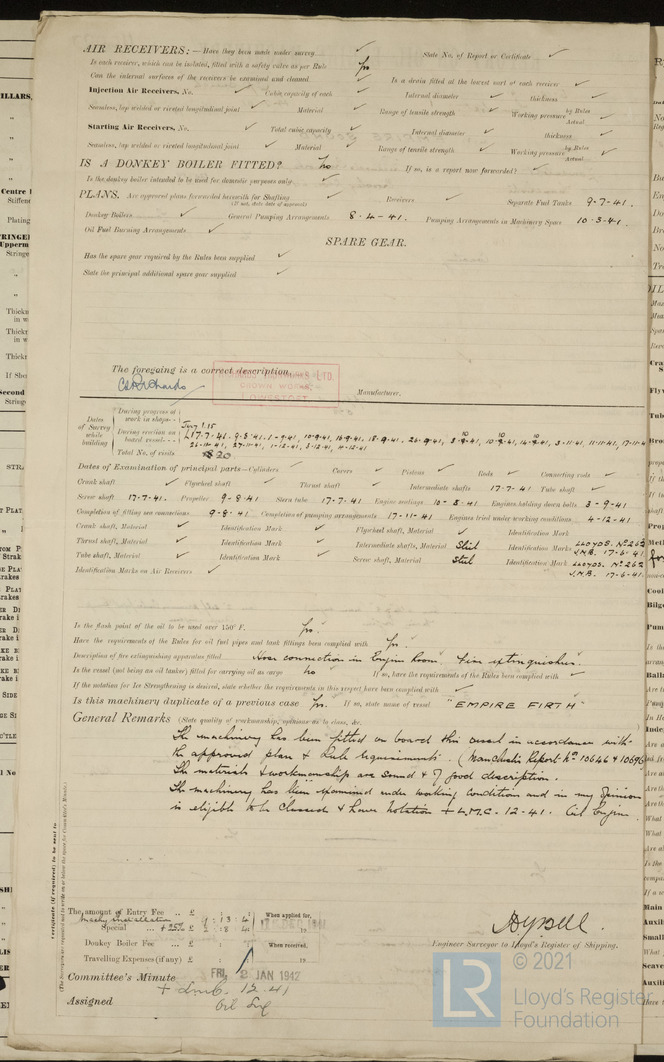 AIR RECEIVERS:—Have they been made under survey ✓ State No. of Report or Certificate ✓
Is each receiver, which can be isolated, fitted with a safety valve as per Rule yes
Can the internal surfaces of the receivers be examined and cleaned ✓ Is a drain fitted at the lowest part of each receiver ✓
Injection Air Receivers, No. Cubic capacity of each ✓ Internal diameter ✓ thickness ✓
Seamless, lap welded or riveted longitudinal joint ✓ Material ✓ Range of tensile strength ✓ Working pressure by Rules Actual
Starting Air Receivers, No. ✓ Total cubic capacity ✓ Internal diameter ✓ thickness ✓
Seamless, lap welded or riveted longitudinal joint ✓ Material ✓ Range of tensile strength ✓ Working pressure by Rules Actual
IS A DONKEY BOILER FITTED? no If so, is a report now forwarded? ✓
Is the donkey boiler intended to be used for domestic purposes only ✓
PLANS. Are approved plans forwarded herewith for Shafting ✓ Receivers ✓ Separate Fuel Tanks 9-7-41.
(If not, state date of approval)
Donkey Boilers ✓ General Pumping Arrangements 8-4-41. Pumping Arrangements in Machinery Space 10-3-41.
Oil Fuel Burning Arrangements ✓
SPARE GEAR.
Has the spare gear required by the Rules been supplied ✓
State the principal additional spare gear supplied ✓
The foregoing is a correct description,
CROWN WORKS,
LOWESTOFT
Manufacturer.
Dates of Survey while building
During progress of work in shops--
During erection on board vessel---
Total No. of visits 20
Dates of Examination of principal parts—Cylinders ✓ Covers ✓ Pistons ✓ Rods ✓ Connecting rods ✓
Crank shaft ✓ Flywheel shaft ✓ Thrust shaft ✓ Intermediate shafts 17-7-41 Tube shaft ✓
Screw shaft 17-7-41. Propeller 9-8-41 Stern tube 17-7-41 Engine seatings 10-8-41 Engines holding down bolts 3-9-41
Completion of fitting sea connections 9-8-41 Completion of pumping arrangements 17-11-41 Engines tried under working conditions 4-12-41
Crank shaft, Material ✓ Identification Mark ✓ Flywheel shaft, Material ✓ Identification Mark
Thrust shaft, Material ✓ Identification Mark ✓ Intermediate shafts, Material Steel Identification Marks LLOYDS. No 262 J.N.B. 17-6-41
Tube shaft, Material ✓ Identification Mark ✓ Screw shaft, Material Steel Identification Mark LLOYDS. No 262 J.N.B. 17-6-41
Identification Marks on Air Receivers ✓
Is the flash point of the oil to be used over 150° F. yes.
Have the requirements of the Rules for oil fuel pipes and tank fittings been complied with yes.
Description of fire extinguishing apparatus fitted Hose connection in Engine Room. Fire extinguisher.
Is the vessel (not being an oil tanker) fitted for carrying oil as cargo no If so, have the requirements of the Rules been complied with ✓
If the notation for Ice Strengthening is desired, state whether the requirements in this respect have been complied with ✓
Is this machinery duplicate of a previous case yes. If so, state name of vessel "EMPIRE FIRTH"
General Remarks (State quality of workmanship, opinions as to class, &c.
The machinery has been fitted on board this vessel in accordance with
the approved plan & Rule requirements. (Manchester Report No 10646 & 10696
The materials & workmanship are sound & of good description.
The machinery has been examined under working condition and in my opinion
is eligible to be Classed & have Notation + L.M.C - 12-41. Oil Engine.
The amount of Entry Fee .. £ : :
Special ... + 25% £ : 8 :
When applied for,
Donkey Boiler Fee ... £ : :
When received,
Travelling Expenses (if any) £ : :
Engineer Surveyor to Lloyd's Register of Shipping.
Committee's Minute FRI. 2 JAN 1942
Assigned + Lmc. 12.41
Oil Eng
LR
© 2021
Lloyd's Register
Foundation